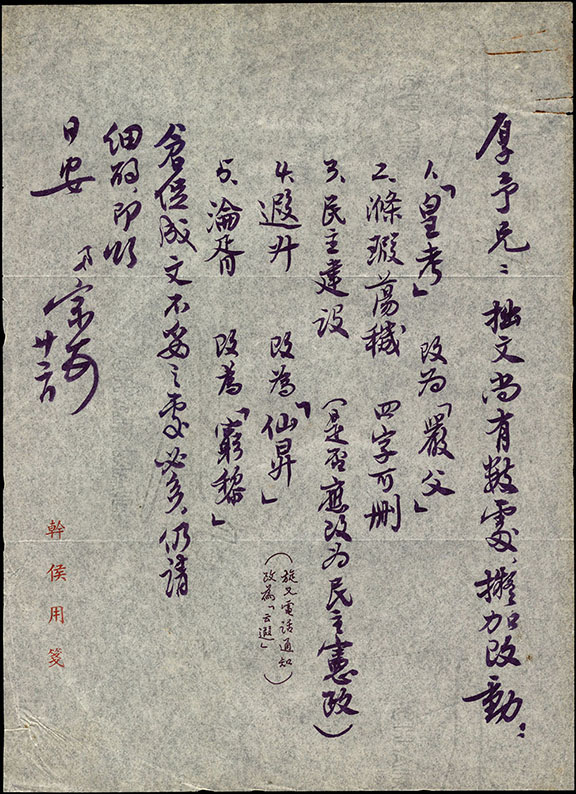 厚予兄：拙文尚有数處，擬加改動：
1.「皇考」 改为「嚴父」
2. 滌瑕蕩穢 四字可删
3. 民主建设 （是否應改为民主憲政）
4. 遐升 改為「仙昇」
（旋又電話通知
改為「云遐」）
5. 淪胥 改為「窮黎」
倉促成文不妥之處必多，仍請
细酌，即順
日安
弟 宗
幹侯用箋